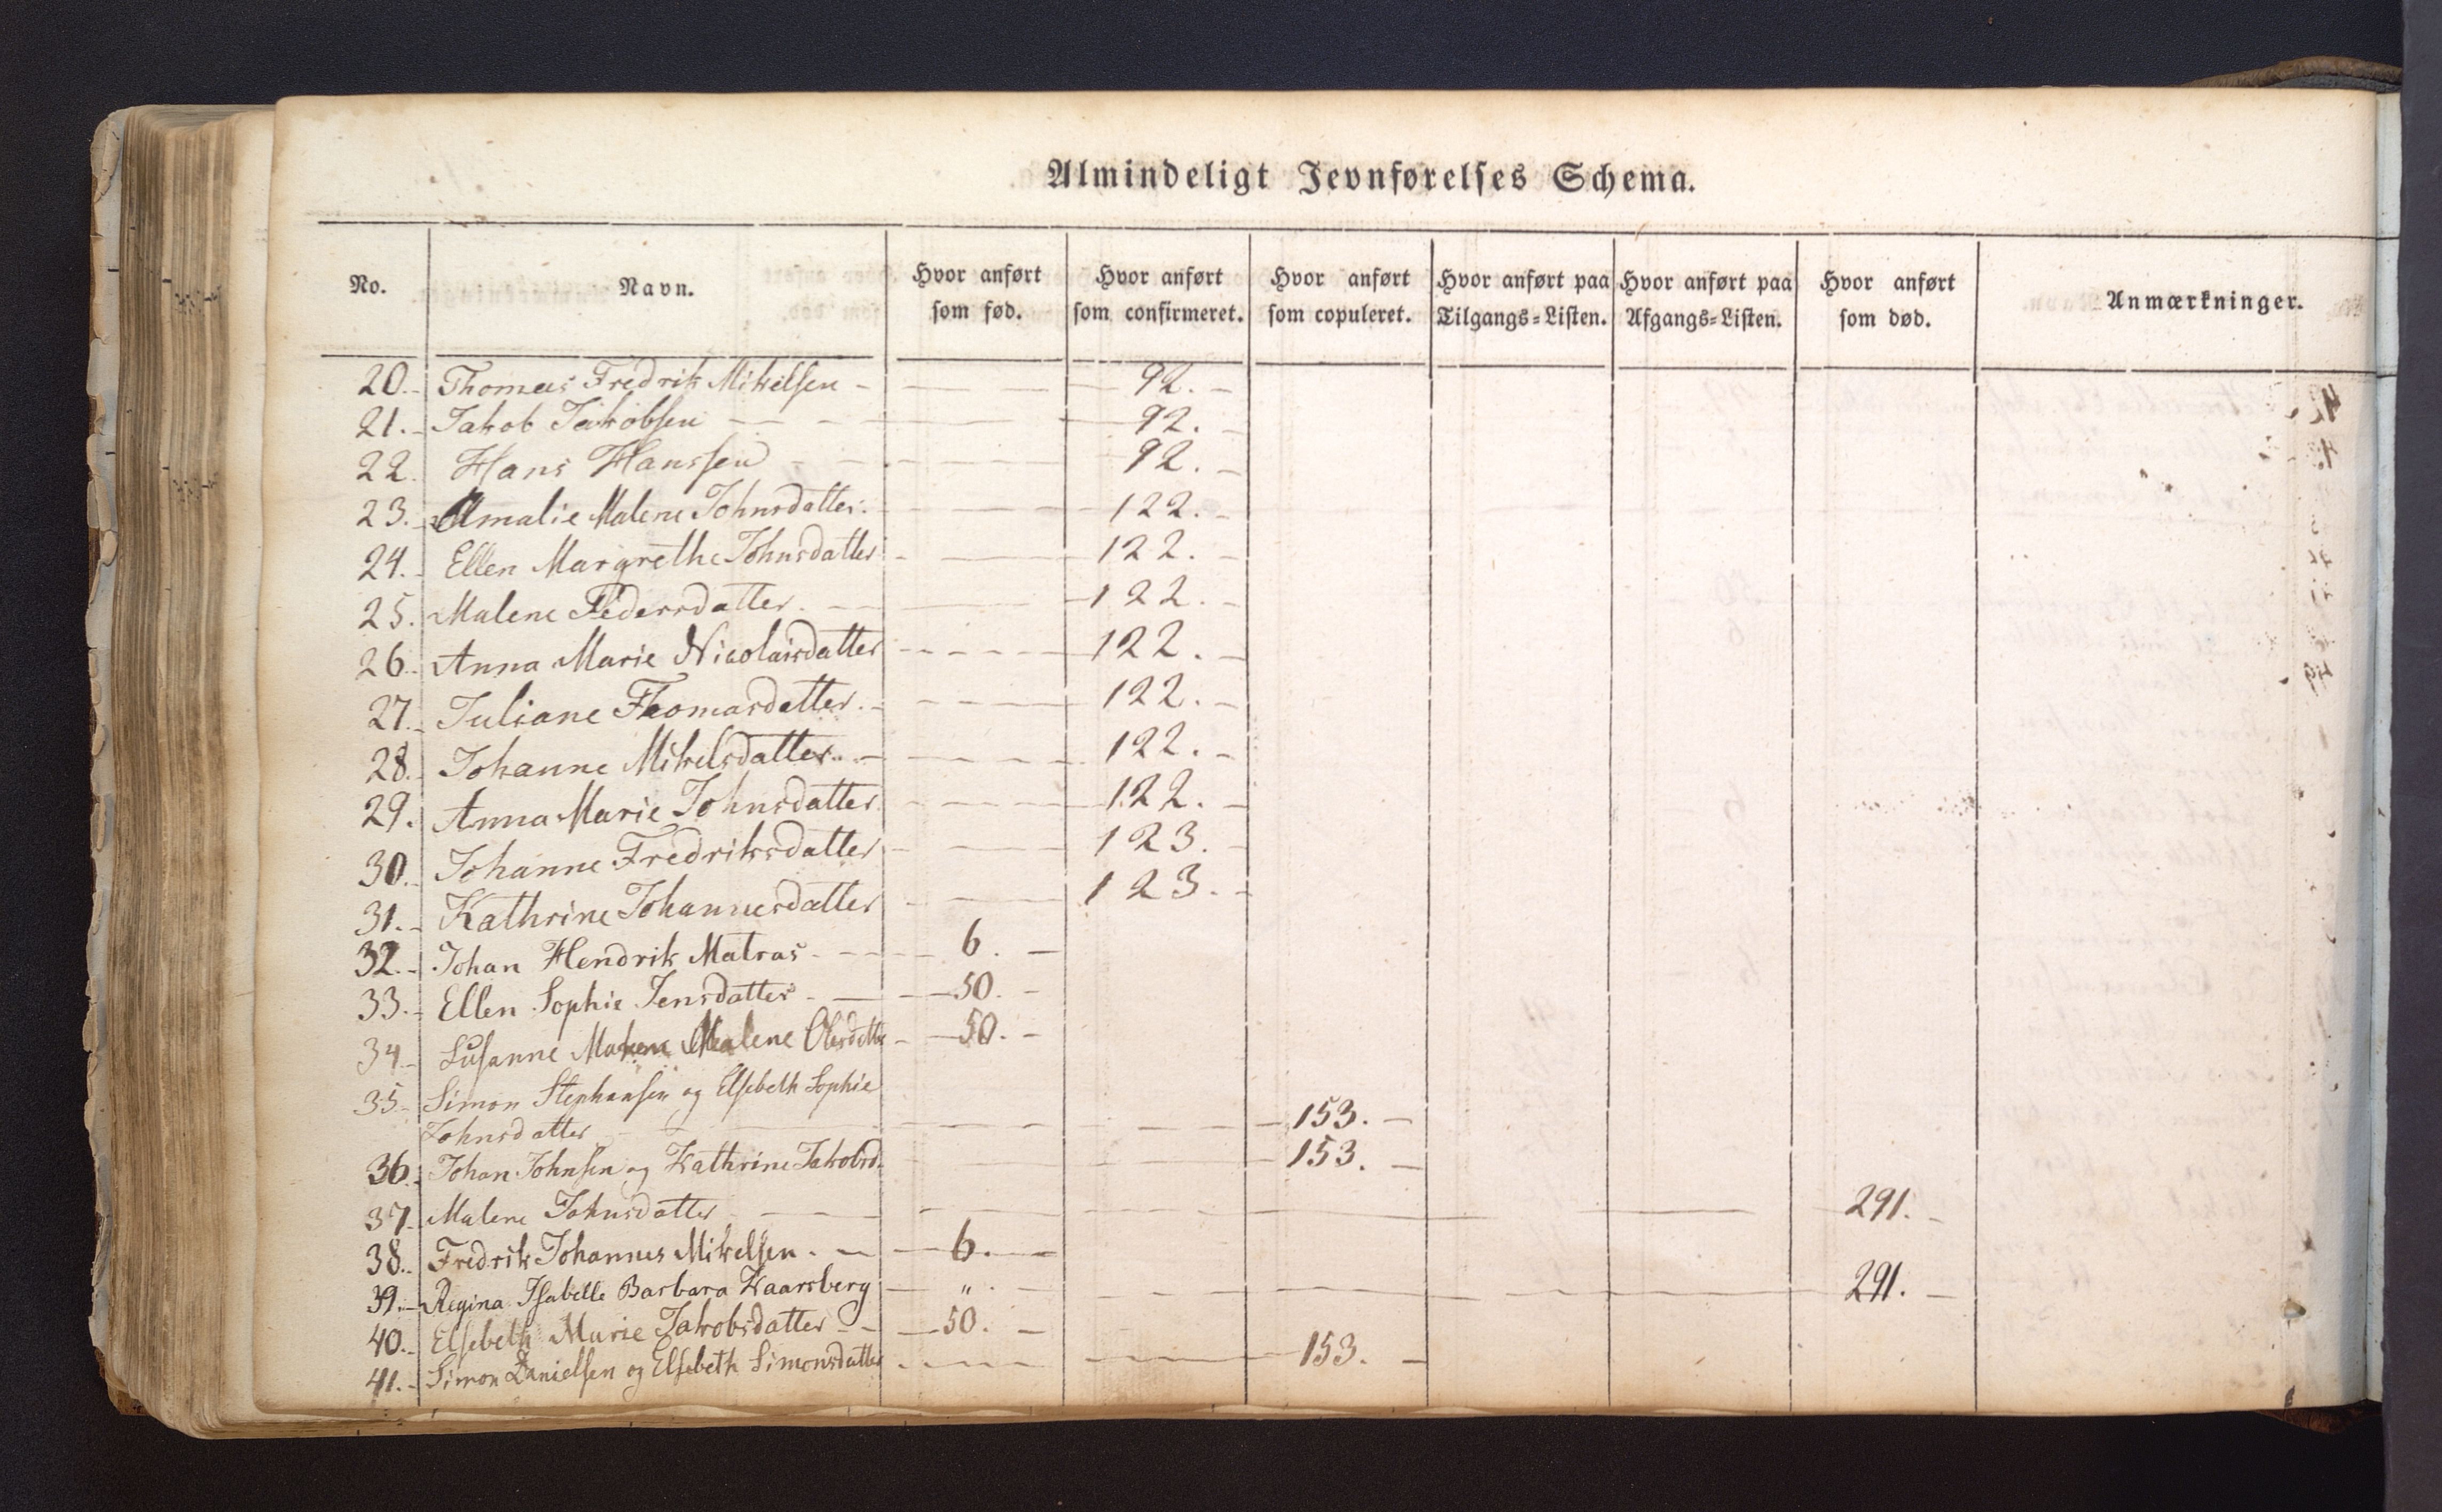 Almindeligt Jevnførelses Schema.
No. Navn. Hvor anført som fød. Hvor anført som confirmeret. Hvor anført som copuleret. Hvor anført paa Tilgangs=Listen. Hvor anført paa Afgangs=Listen. Hvor anført som død. Anmærkninger.
20. Thomas Fredrik Mikelsen 92.
21. Jakob Jakobsen 92.
22. Hans Hanssen 92.
23. Amalie Malene Johnsdatter 122.
24. Ellen Margrethe Johnsdatter 122.
25. Malene Pedersdatter 122.
26. Anna Marie Nicolaisdatter 122.
27. Juliane Thomasdatter 122.
28. Johanne Mikelsdatter 122.
29. Anna Marie Johnsdatter 122.
30. Johanne Fredriksdatter 123.
31. Kathrine Johannesdatter 123.
32. Johan Hendrik Matras 6.
33. Ellen Sophie Jensdatter 50.
34. Susanne Malene Olesdatter 50.
35. Simon Stephansen og Elsebeth Sophie
Johnsdatter 153.
36. Johan Johnsen og Kathrine Jakobsd. 153.
37. Malene Johnsdatter 291.
38. Fredrik Johannes Mikelsen 6.
39. Regina Isabelle Barbara Kaarsberg " 291.
40. Elsebeth Marie Jakobsdatter 50.
41. Simon Danielsen og Elsebeth Simonsdatter 153.